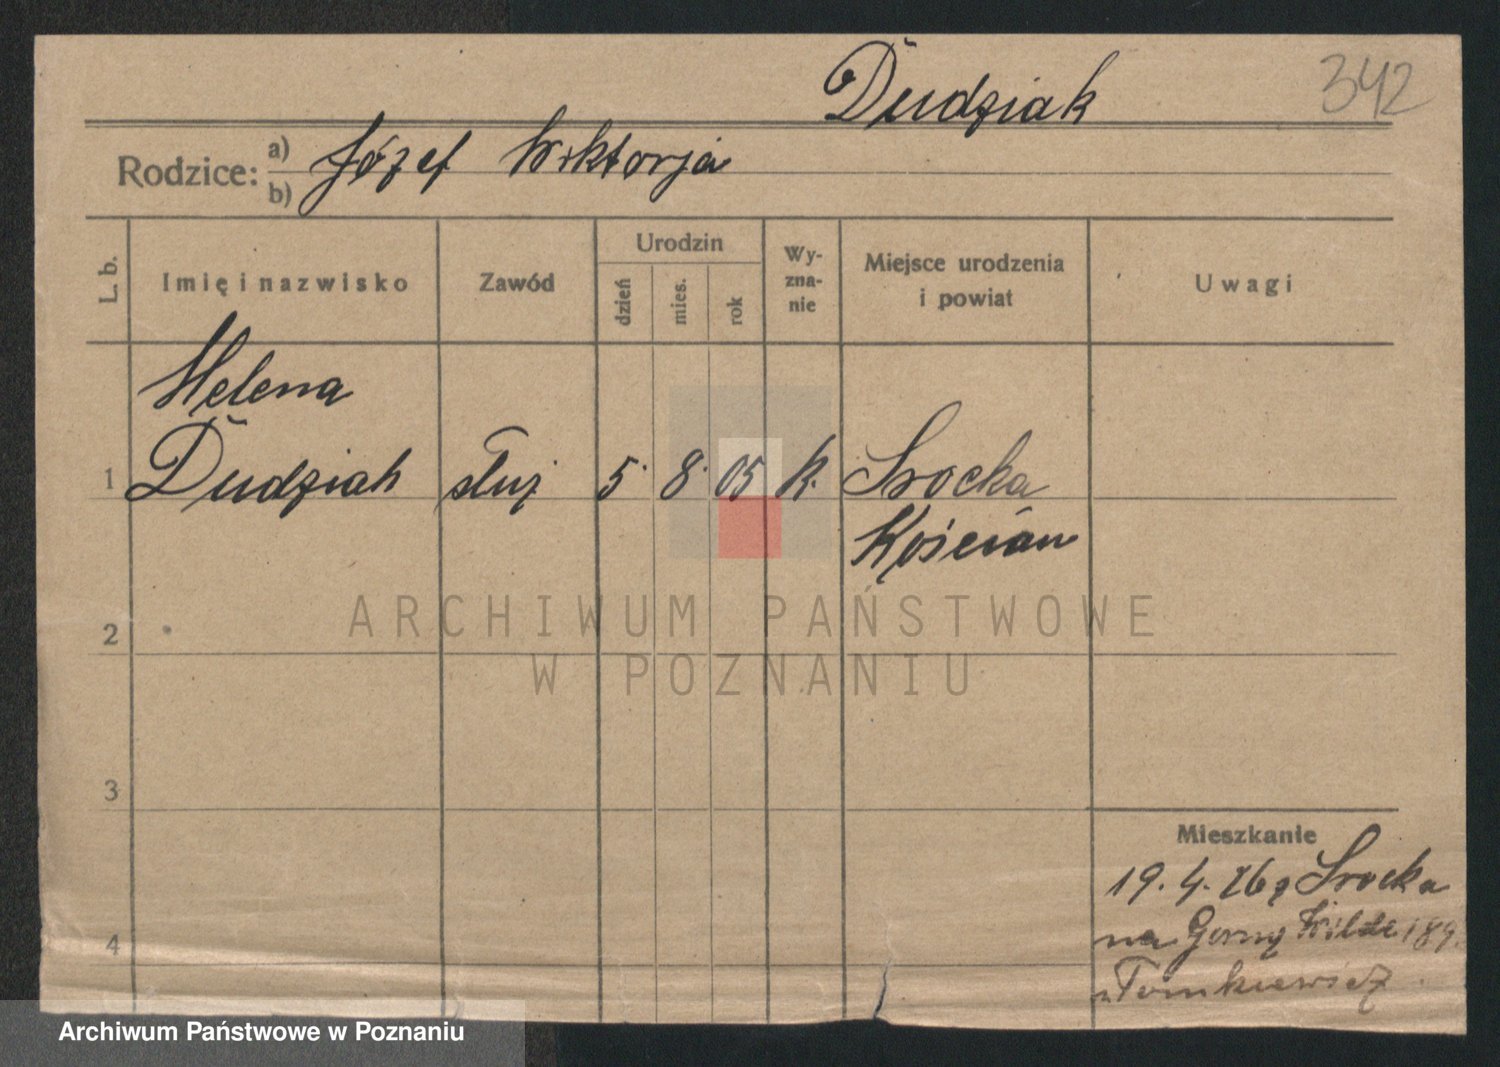 Dudziak
342
Rodzice: a) Józef Wiktorja
b)
L. b.
Imię i nazwisko
Zawód
Urodzin
dzień
mies.
rok
Wy-
zna-
nie
Miejsce urodzenia
i powiat
Uwagi
Helena
1 Dudziak służ 5. 8. 05 k. Srocka
Kościan
2
3
4
Mieszkanie
19. 4. 26 z Srocka
na Górną Wildę 189.
Tomkiewicz
ARCHIWUM PAŃSTWOWE
W POZNANIU
Archiwum Państwowe w Poznaniu